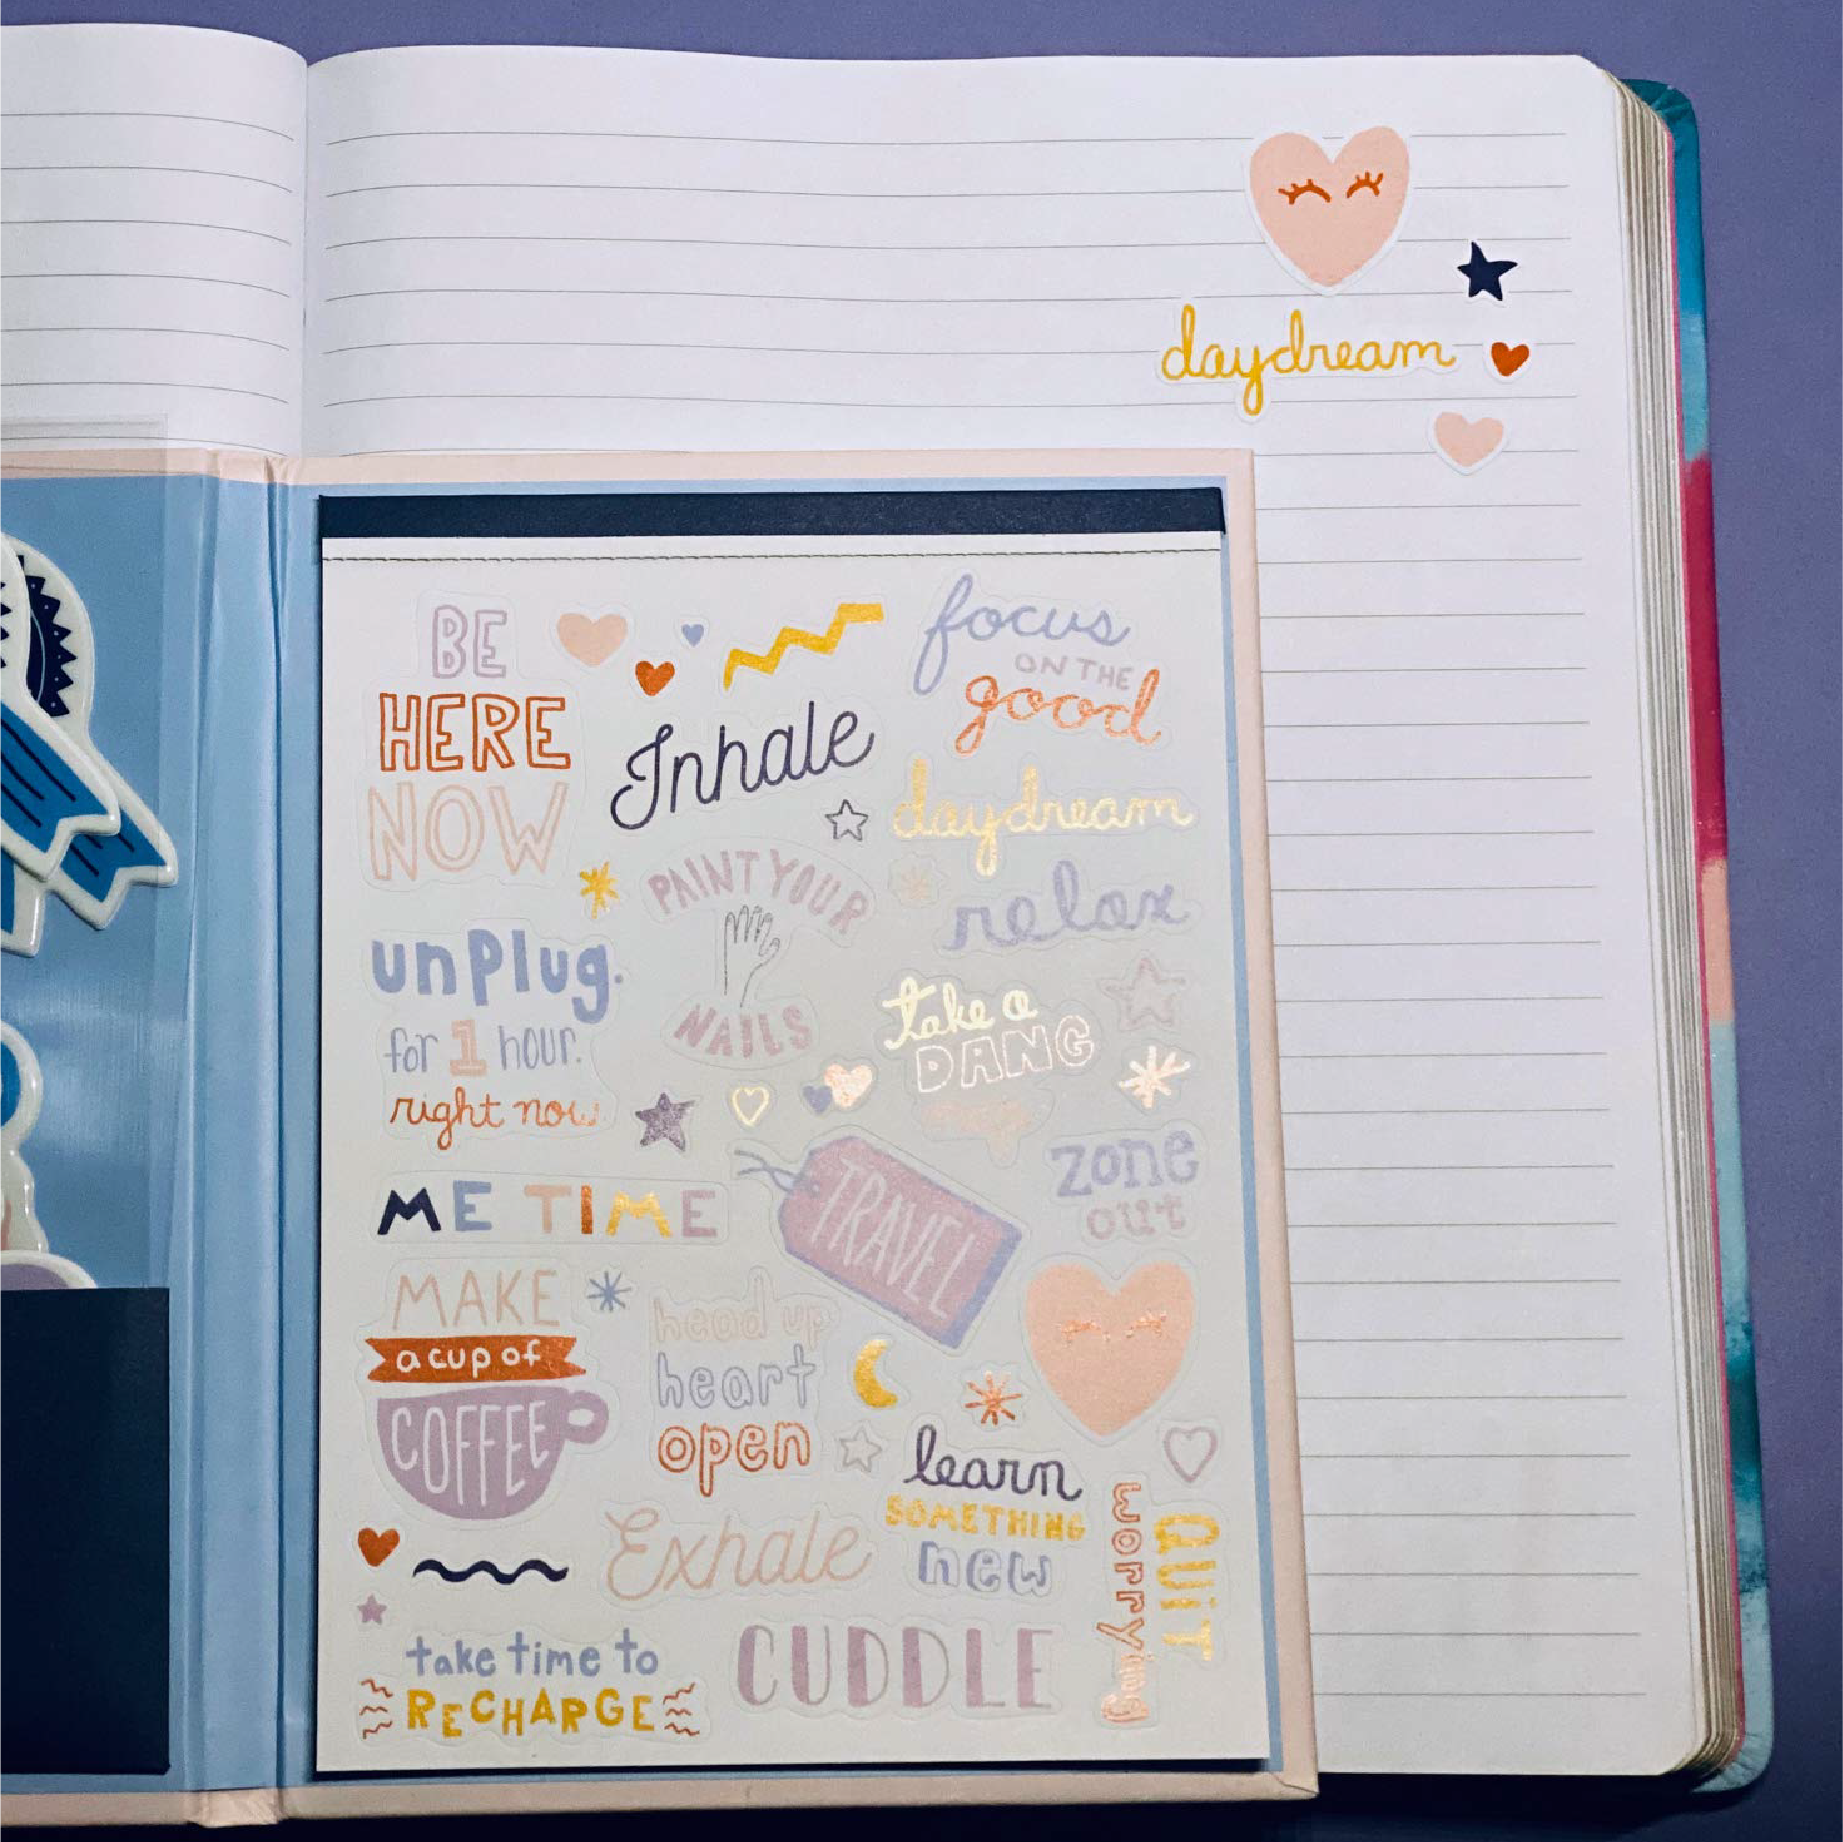 daydream
BE
HERE
NOW
focus
ON THE
good
Inhale
daydream
PAINT YOUR
NAILS
relax
unplug.
for 1 hour.
right now
take a
DANG
nap
ME TIME
TRAVEL
zone
out
MAKE
a cup of
COFFEE
head up
heart
open
learn
SOMETHING
new
Exhale
QUIT
worrying
take time to
RECHARGE
CUDDLE